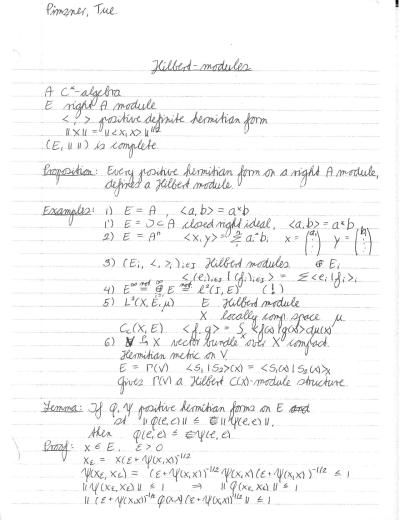 Pimsner, Tue
Hilbert-modules
A C*-algebra
E right A module
< , > positive definite hermitian form
‖x‖ = ‖<x,x>‖^1/2
(E, ‖ ‖) is complete
Proposition: Every positive hermitian form on a right A module,
defines a Hilbert module.
Examples: 1) E = A, <a,b> = a*b
1') E = J ⊂ A closed right ideal, <a,b> = a*b
2) E = Aⁿ <x,y> = Σ aᵢ*bᵢ x = (a₁ ⋮) y = (b₁ ⋮)
3) (Eᵢ, <,>ᵢ)ᵢ∈I Hilbert modules ⊕ Eᵢ
<(eᵢ)ᵢ∈I | (fᵢ)ᵢ∈I> = Σ<eᵢ|fᵢ>ᵢ
4) E^∞ not= ⊕ E not= l²(I,E) (!)
5) L²(X,E,μ) E Hilbert module
X locally comp. space μ
C_c(X,E) <f,g> = ∫_X <f(x)|g(x)>dμ(x)
6) V X vector bundle over X compact.
Hermitian metric on V.
E = Γ(V) <S₁|S₂>(x) = <S₁(x)|S₂(x)>ₓ
Gives Γ(V) a Hilbert C(X)-module structure.
Lemma: If φ, ψ positive hermitian forms on E and
st ‖φ(e,e)‖ ≤ ‖ψ(e,e)‖.
then φ(e,e) ≤ ψ(e,e)
Proof: x ∈ E, ε > 0
x_ε = x(ε+ψ(x,x))^-1/2
ψ(x_ε,x_ε) = (ε+ψ(x,x))^-1/2 ψ(x,x)(ε+ψ(x,x))^-1/2 ≤ 1
‖ψ(x_ε,x_ε)‖ ≤ 1 ⇒ ‖φ(x_ε,x_ε)‖ ≤ 1
‖(ε+ψ(x,x))^-1/2 φ(x,x)(ε+ψ(x,x))^-1/2‖ ≤ 1